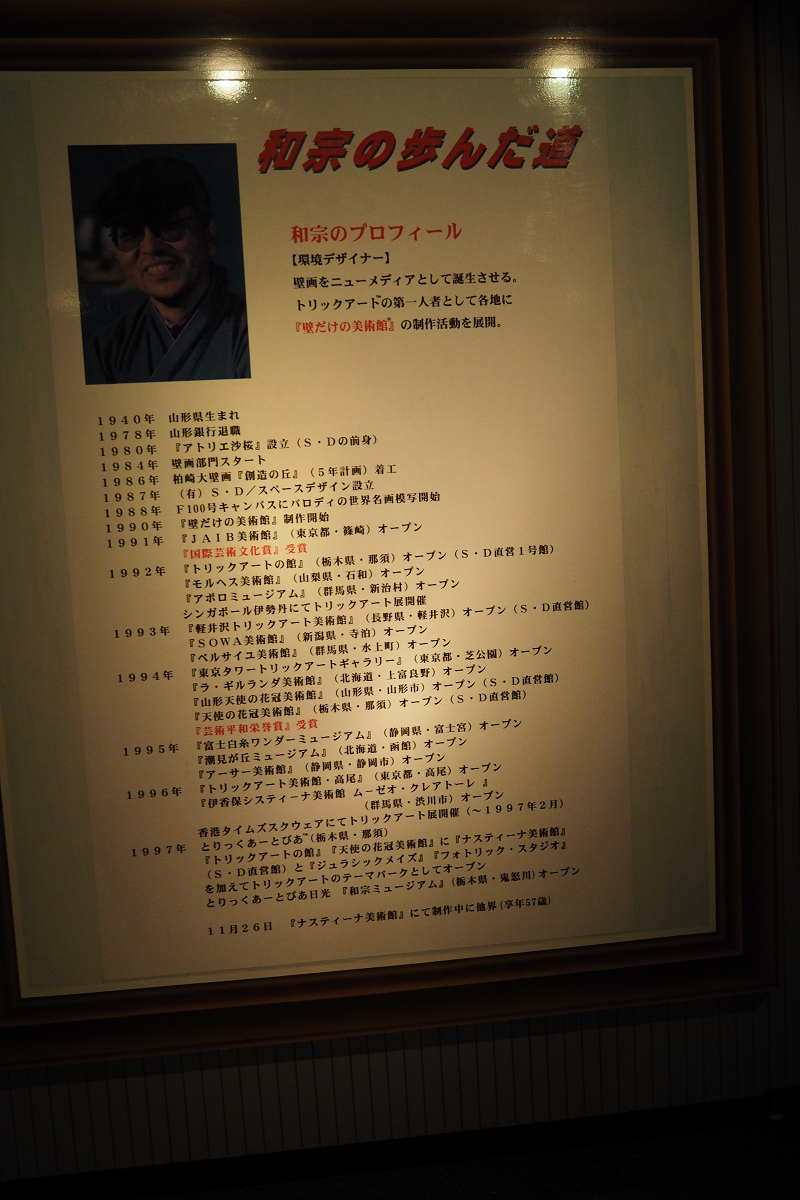 和宗の歩んだ道
和宗のプロフィール
【環境デザイナー】
壁画をニューメディアとして誕生させる。
トリックアートの第一人者として各地に
『壁だけの美術館』の制作活動を展開。
1940年 山形県生まれ
1978年 山形銀行退職
1980年 『アトリエ沙桜』設立（S・Dの前身）
1984年 壁画部門スタート
1986年 柏崎大壁画『創造の丘』（5年計画）着工
1987年 （有）S・D／スペースデザイン設立
1988年 F100号キャンバスにパロディの世界名画模写開始
1990年 『壁だけの美術館』制作開始
1991年 『JAIB美術館』（東京都・篠崎）オープン
『国際芸術文化賞』受賞
1992年 『トリックアートの館』（栃木県・那須）オープン（S・D直営1号館）
『モルヘス美術館』（山梨県・石和）オープン
『アポロミュージアム』（群馬県・新治村）オープン
シンガポール伊勢丹にてトリックアート展開催
1993年 『軽井沢トリックアート美術館』（長野県・軽井沢）オープン（S・D直営館）
『SOWA美術館』（新潟県・寺泊）オープン
『ベルサイユ美術館』（群馬県・水上町）オープン
1994年 『東京タワートリックアートギャラリー』（東京都・芝公園）オープン
『ラ・ギルランダ美術館』（北海道・上富良野）オープン
『山形天使の花冠美術館』（山形県・山形市）オープン（S・D直営館）
『天使の花冠美術館』（栃木県・那須）オープン（S・D直営館）
『芸術平和栄誉賞』受賞
1995年 『富士白糸ワンダーミュージアム』（静岡県・富士宮）オープン
『潮見が丘ミュージアム』（北海道・函館）オープン
『アーサー美術館』（静岡県・静岡市）オープン
1996年 『トリックアート美術館・高尾』（東京都・高尾）オープン
『伊香保システィーナ美術館 ムーゼオ・クレアトーレ 』
（群馬県・渋川市）オープン
香港タイムズスクウェアにてトリックアート展開催（～1997年2月）
1997年 とりっくあーとぴあ™（栃木県・那須）
『トリックアートの館』『天使の花冠美術館』に『ナスティーナ美術館』
（S・D直営館）と『ジュラシックメイズ』『フォトリック・スタジオ』
を加えてトリックアートのテーマパークとしてオープン
とりっくあーとぴあ日光 『和宗ミュージアム』（栃木県・鬼怒川）オープン
11月26日 『ナスティーナ美術館』にて制作中に他界（享年57歳）